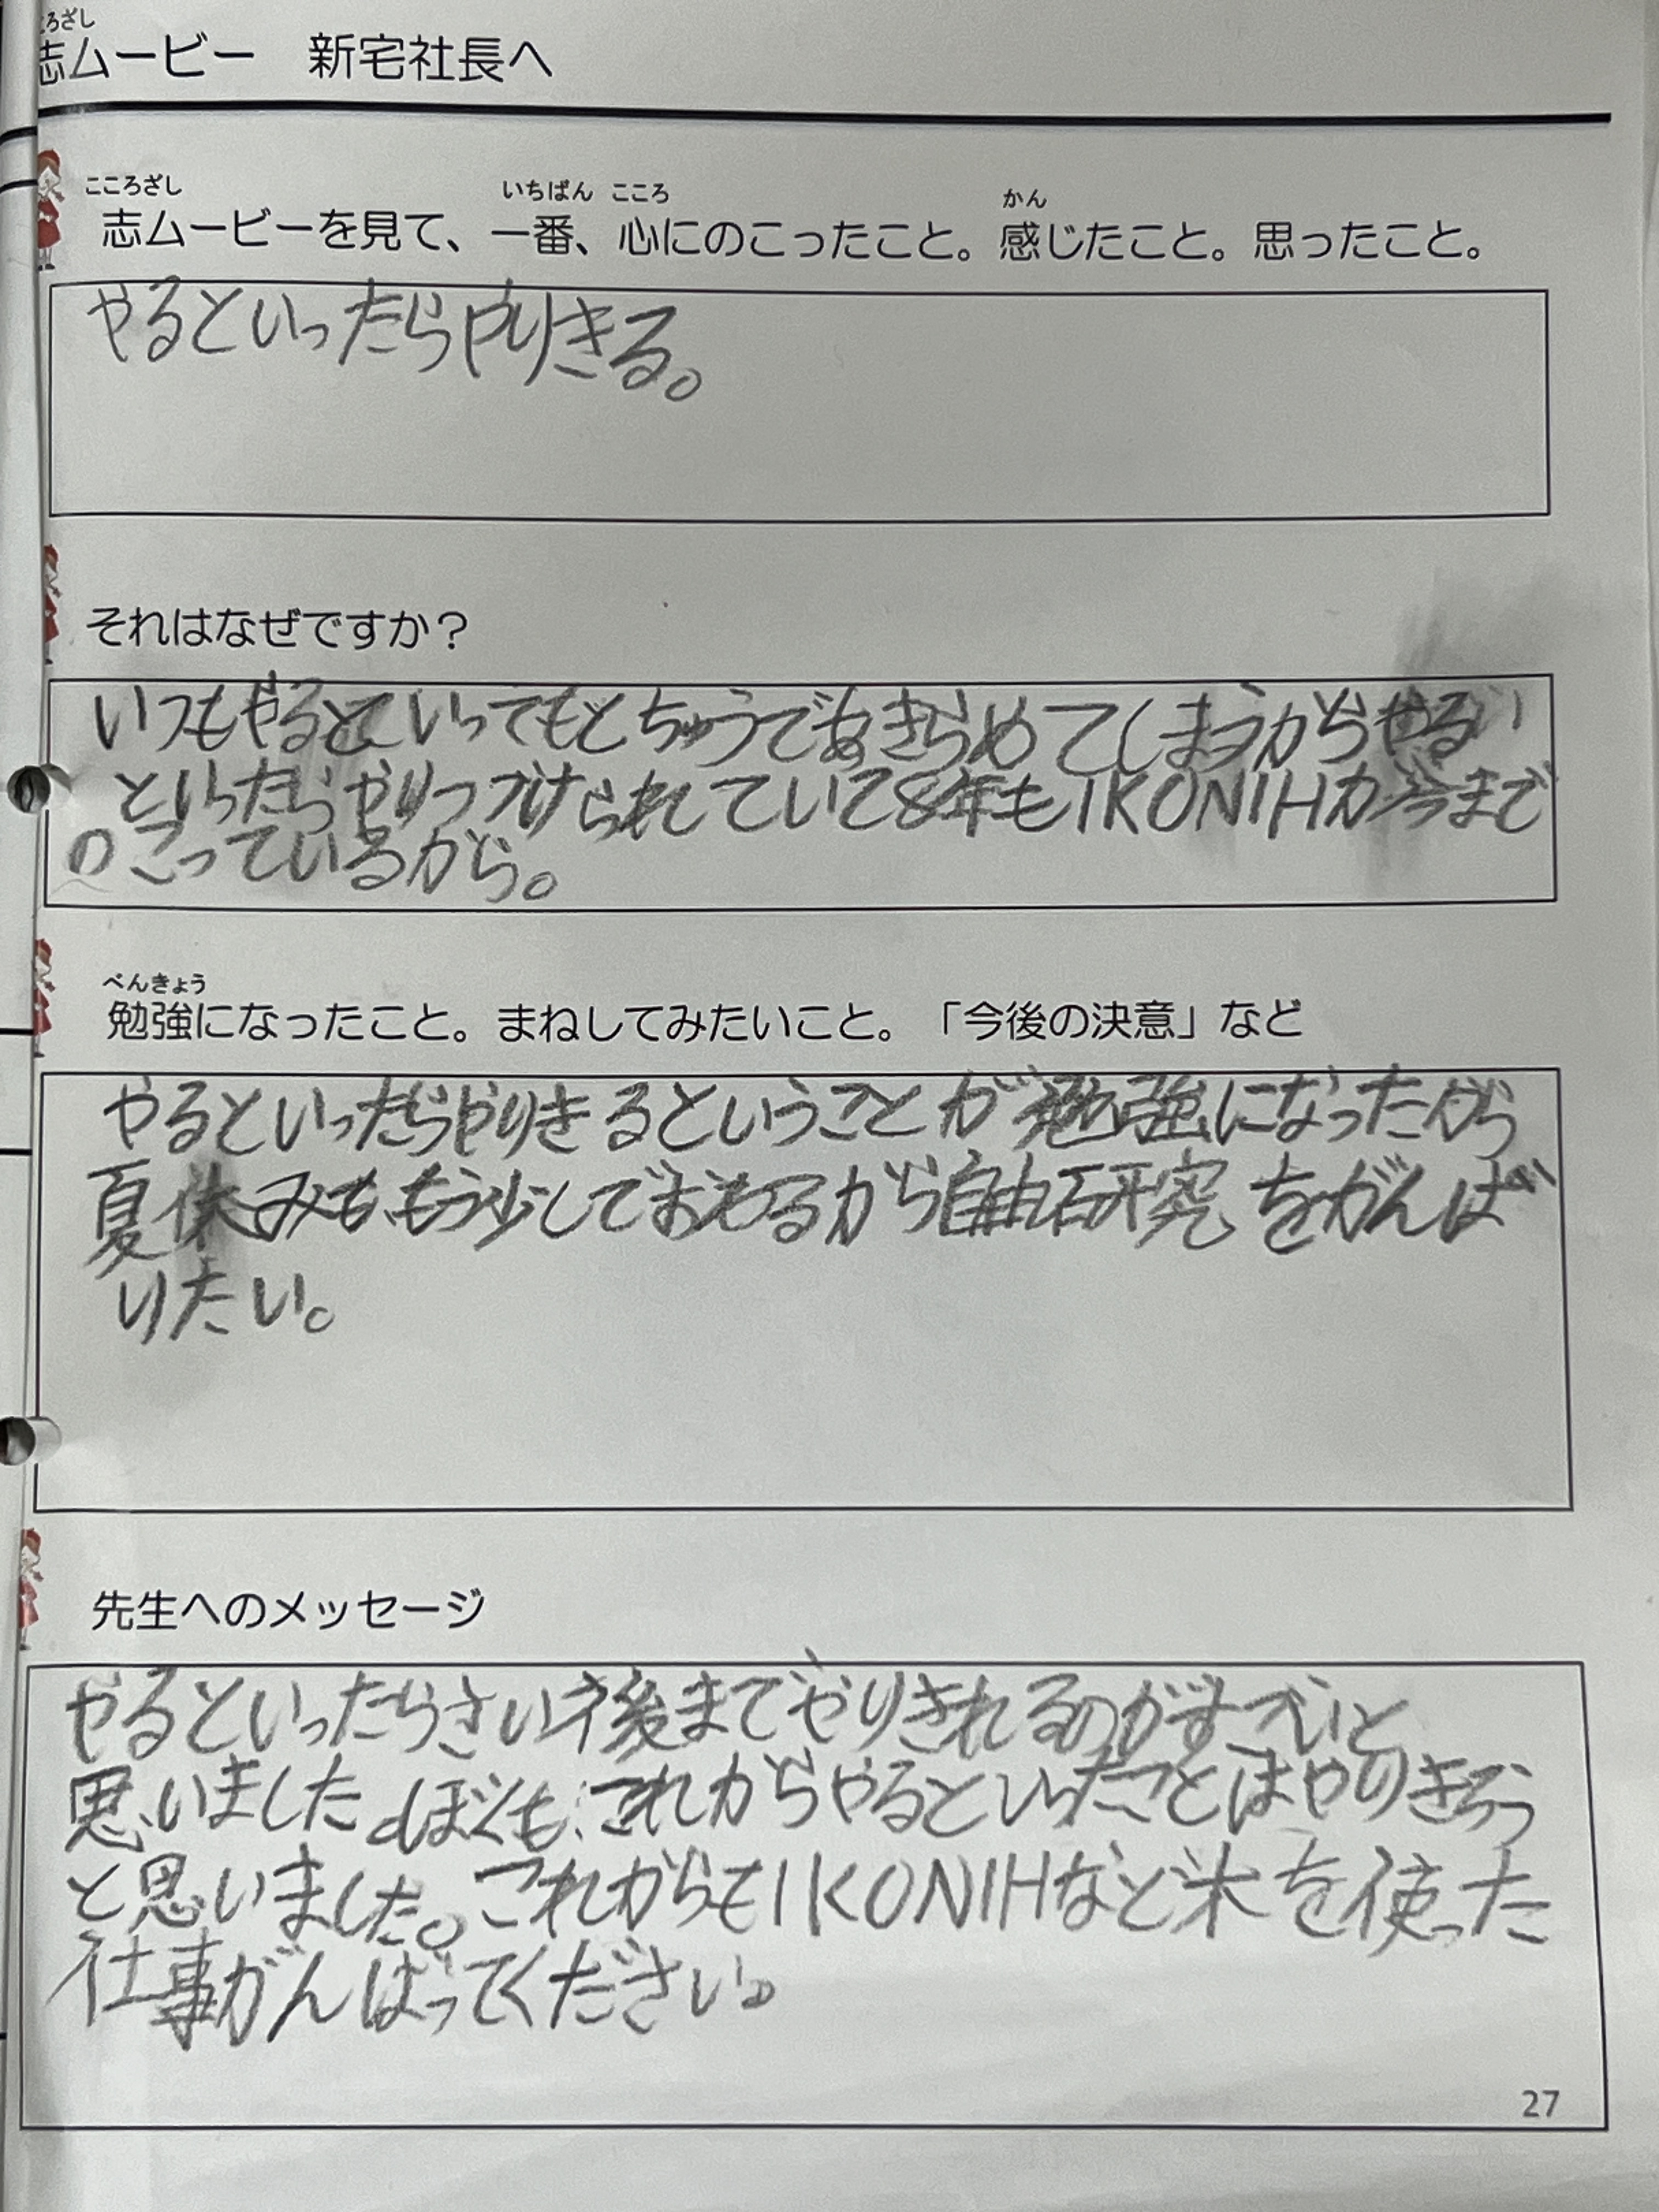 ころざし
志ムービー 新宅社長へ
こころざし いちばん こころ かん
志ムービーを見て、一番、心にのこったこと。感じたこと。思ったこと。
やるといったらやりきる。
それはなぜですか？
いつもやるといってもとちゅうであきらめてしまうからやる
といったらやりつづけられていて8年もIKONIHが今まで
のこっているから。
べんきょう
勉強になったこと。まねしてみたいこと。「今後の決意」など
やるといったらやりきるということが勉強になったから
夏休みももう少しでおわるから自由研究をがんば
りたい。
先生へのメッセージ
やるといったらさい後までやりきれるのがすごいと
思いました。ぼくもこれからやるといったことはやりきろう
と思いました。これからもIKONIHなど木を使った
仕事がんばってください。
27